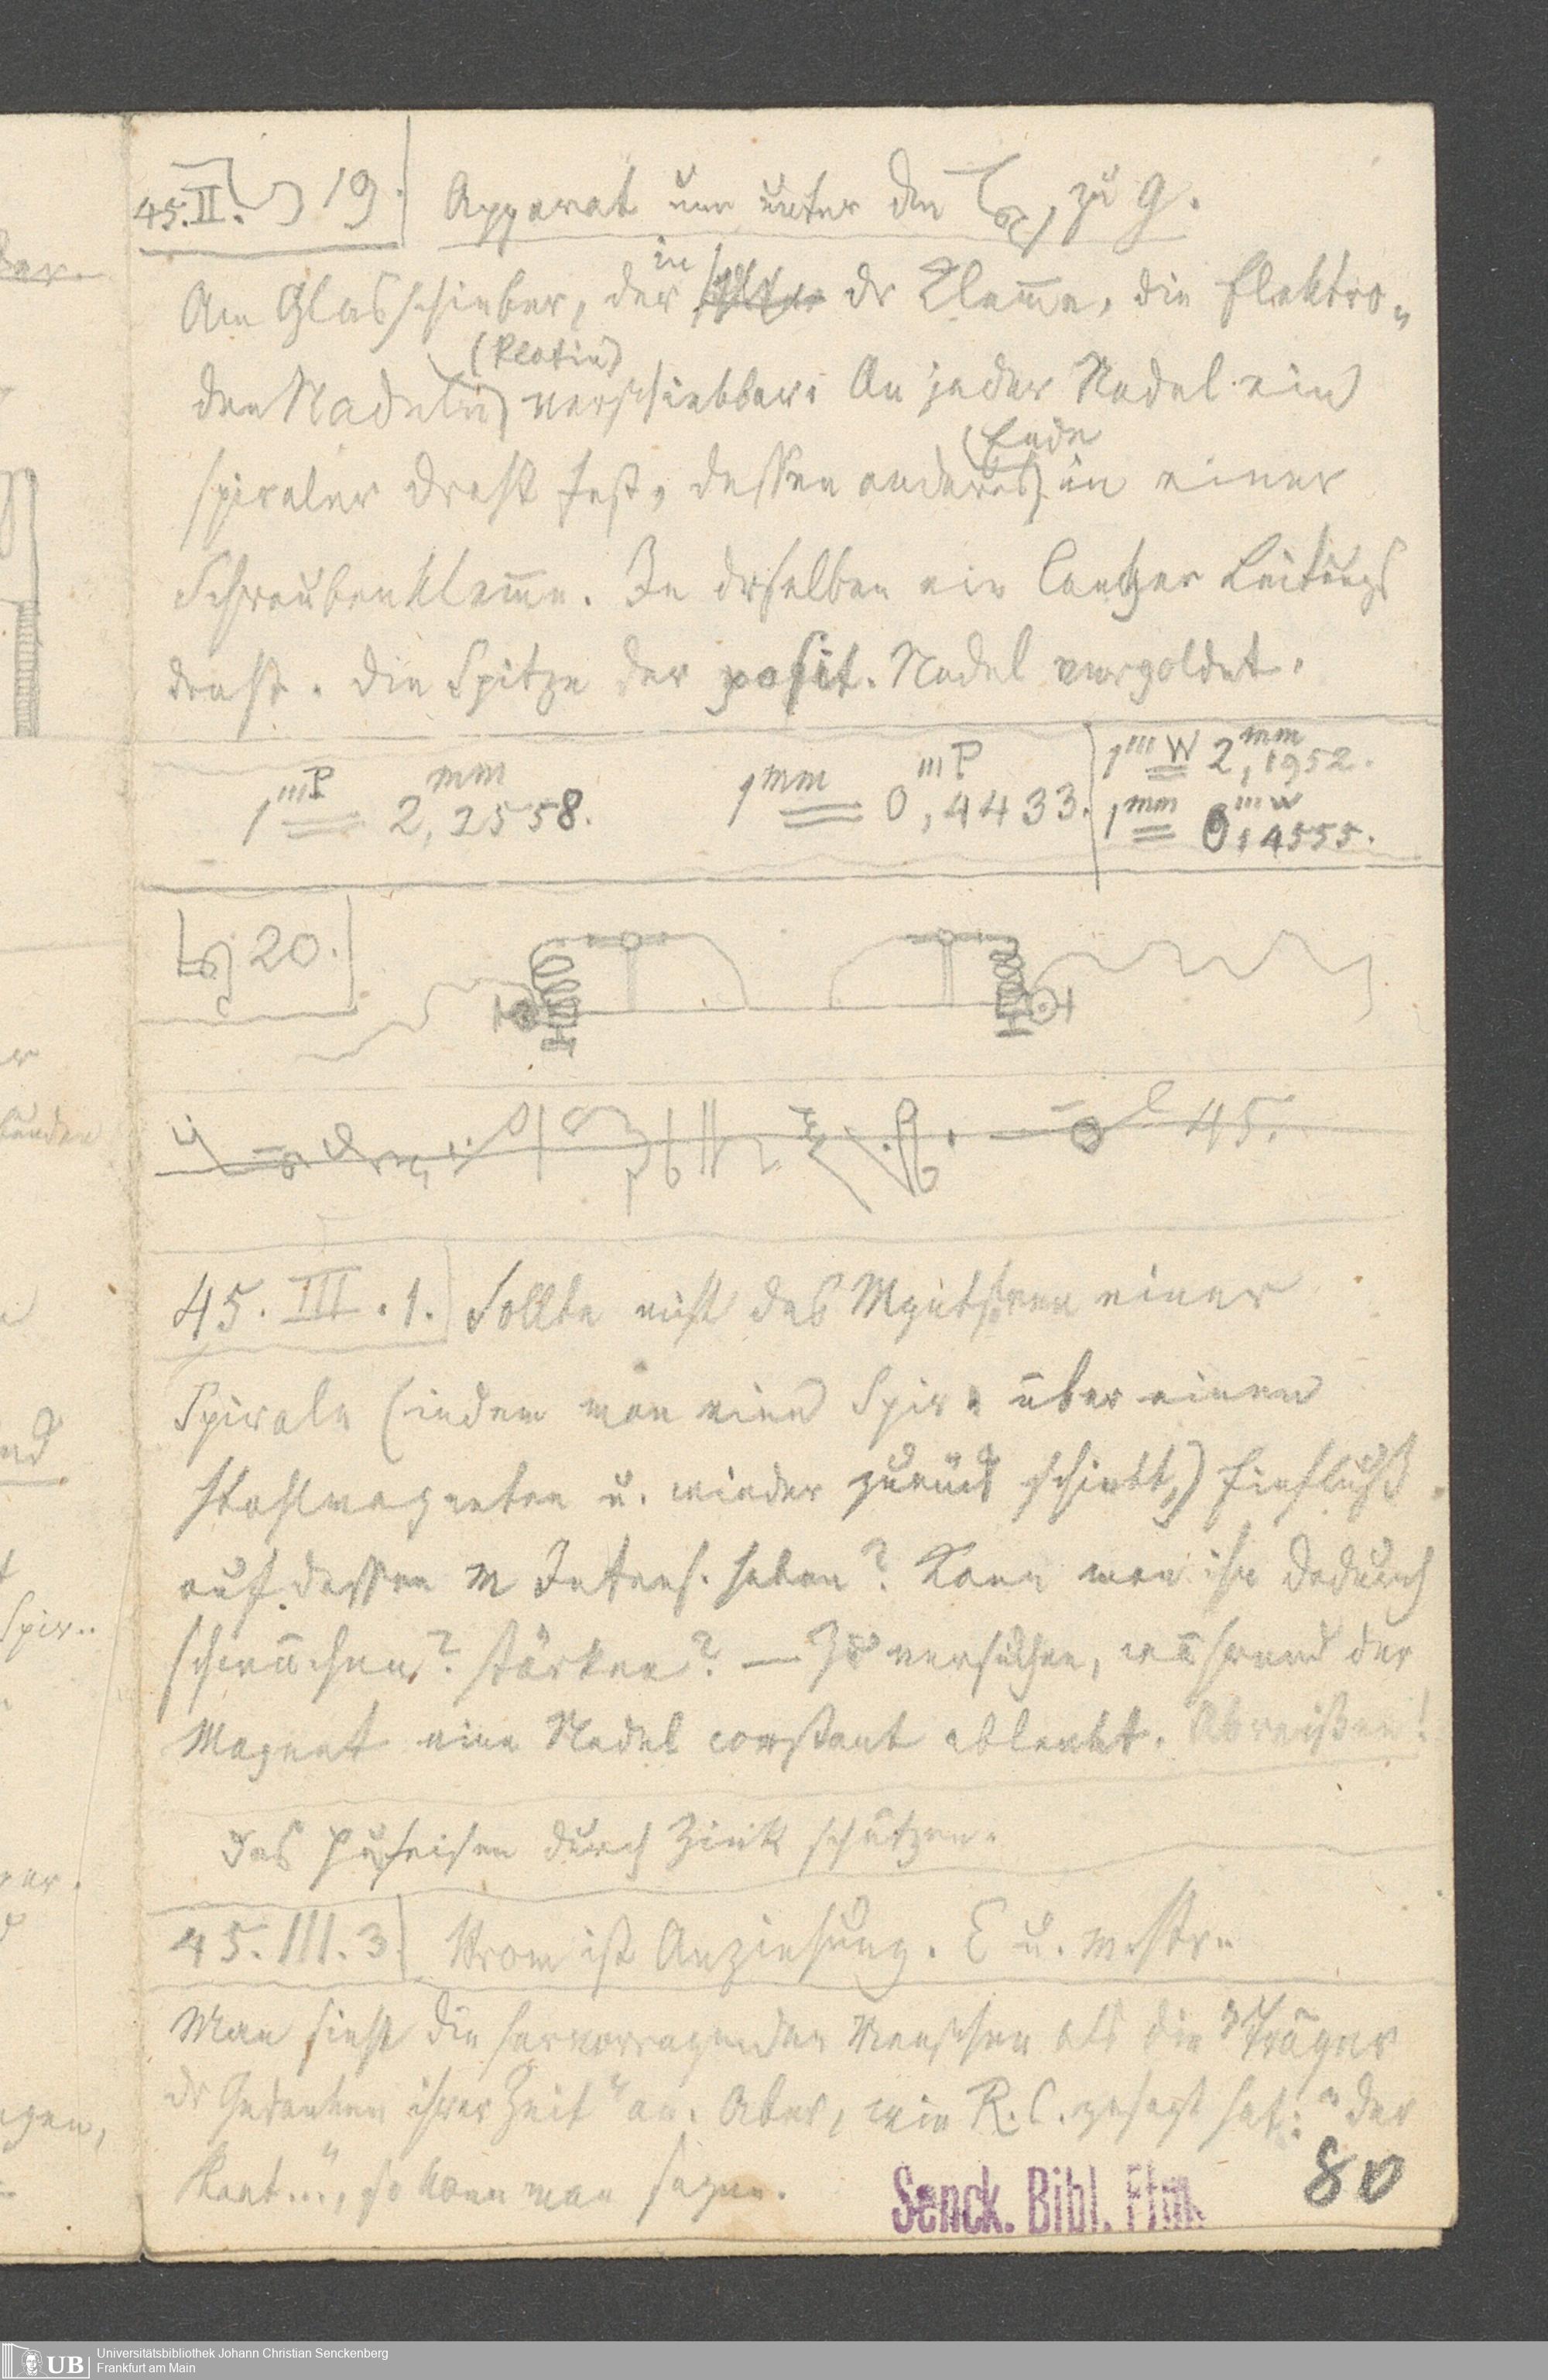 45. II. 19. Apparat um unter den zu g.
Am Glasschieber, der in der Klemme, die Elektro„
den Nadeln (Platin) verschiebbar. An jeder Nadel ein
spiraler Draht fest, dessen anderes Ende in einer
Schraubenklemme. In derselben ein langer Leitungs
draht. Die Spitze der posit. Nadel vergoldet.
1'''P = 2,2558 mm. 1mm = 0,4433 '''P.
1'''W = 2,1952 mm.
1mm = 0,4555 '''W.
20.
45.
45. III. 1. Sollte nicht das Mgnts:ren einer
Spirale (indem man eine Spir. über einen
Stahlmagneten u. wieder zurück schiebt,) Einfluß
auf dessen m Intens. haben? Kann man ihn dadurch
schwächen? stärken? — Zu versuchen, während der
Magnet eine Nadel constant ablenkt. Abreißen!
Das Hufeisen durch Zink schützen.
45. III. 3. Strom ist Anziehung. E u. m. Str.
Man sieht die hervorragenden Menschen als die "Träger
dr Gedanken ihrer Zeit" an. Aber, wie R. C. gesagt hat: "der
Kant...", so kann man sagen.
80
Senck. Bibl. Ffm
UB Universitätsbibliothek Johann Christian Senckenberg
Frankfurt am Main